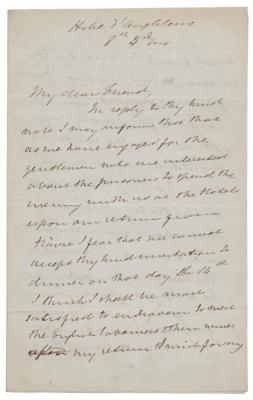 Hotel d'Angleterre
8th 3rd mo
My dear Friend,
In reply to thy kind
note I may inform thee that
as we have engaged for the
gentlemen who are interested
about the prisoners to spend the
evening with us at the Hotel
upon our return from
I fear that we cannot
accept thy kind invitation to
dinner on that day the 14th
I think I shall be most
satisfied to endeavour to meet
the English
my return I wish for my